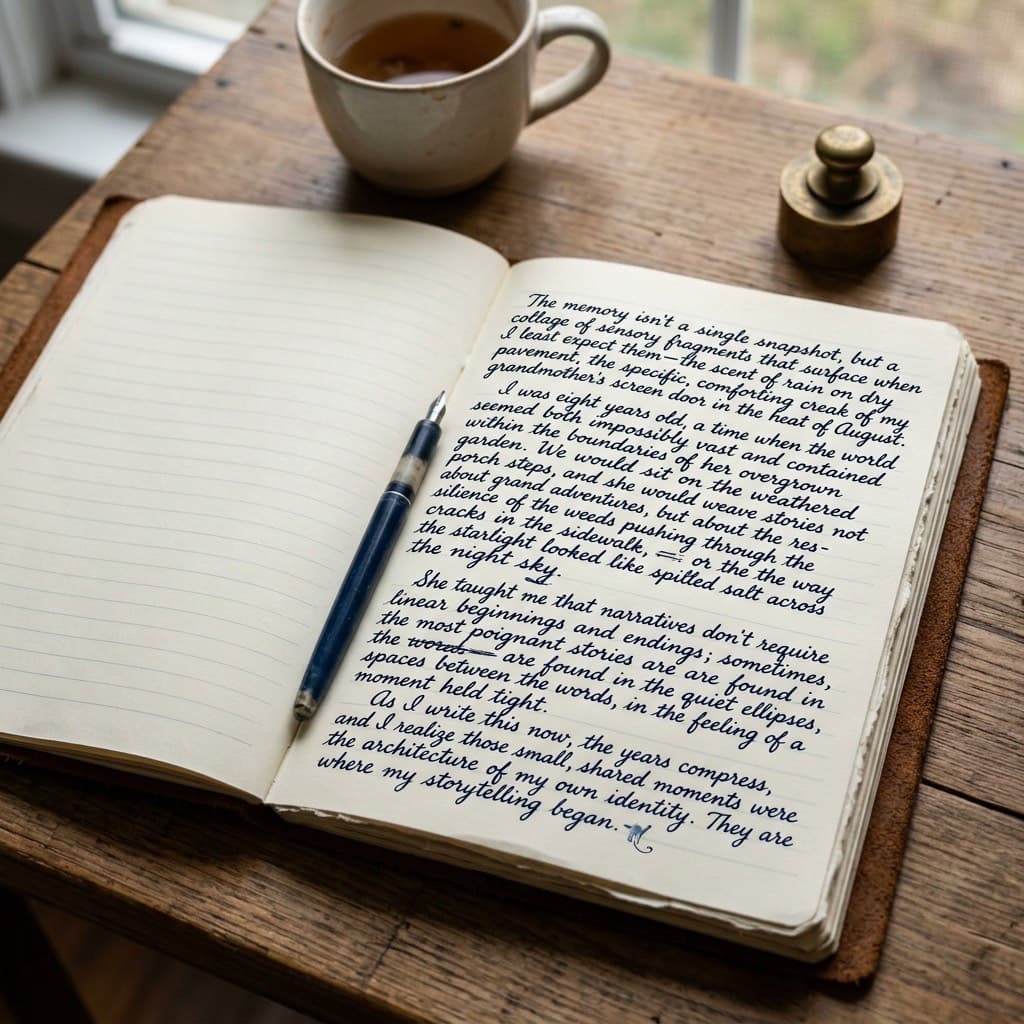 The memory isn't a single snapshot, but a
collage of sensory fragments that surface when
I least expect them—the scent of rain on dry
pavement, the specific, comforting creak of my
grandmother's screen door in the heat of August.
I was eight years old, a time when the world
seemed both impossibly vast and contained
within the boundaries of her overgrown
garden. We would sit on the weathered
porch steps, and she would weave stories not
about grand adventures, but about the res-
silience of the weeds pushing through the
cracks in the sidewalk, or the the way
the starlight looked like spilled salt across
the night sky.
She taught me that narratives don't require
linear beginnings and endings; sometimes,
the most poignant stories are are found in
the words are found in the quiet ellipses,
spaces between the words, in the feeling of a
moment held tight.
As I write this now, the years compress,
and I realize those small, shared moments were
the architecture of my own identity. They are
where my storytelling began.